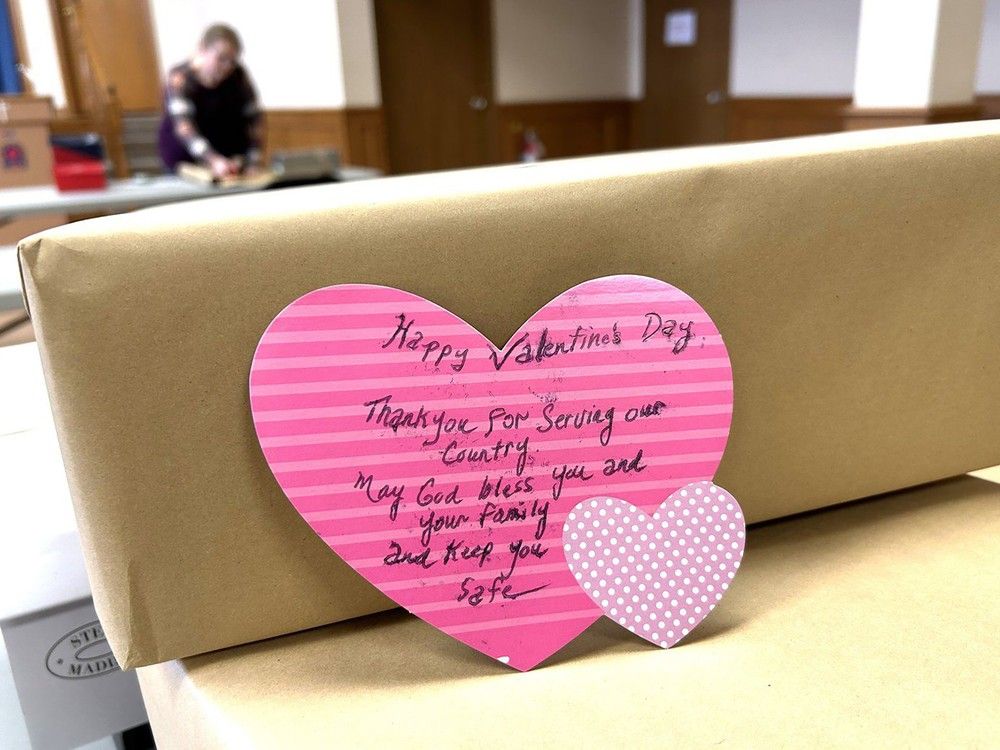 Happy Valentine's Day.
Thank you for Serving our
Country.
May God bless you and
your family
and Keep you
Safe
MADE